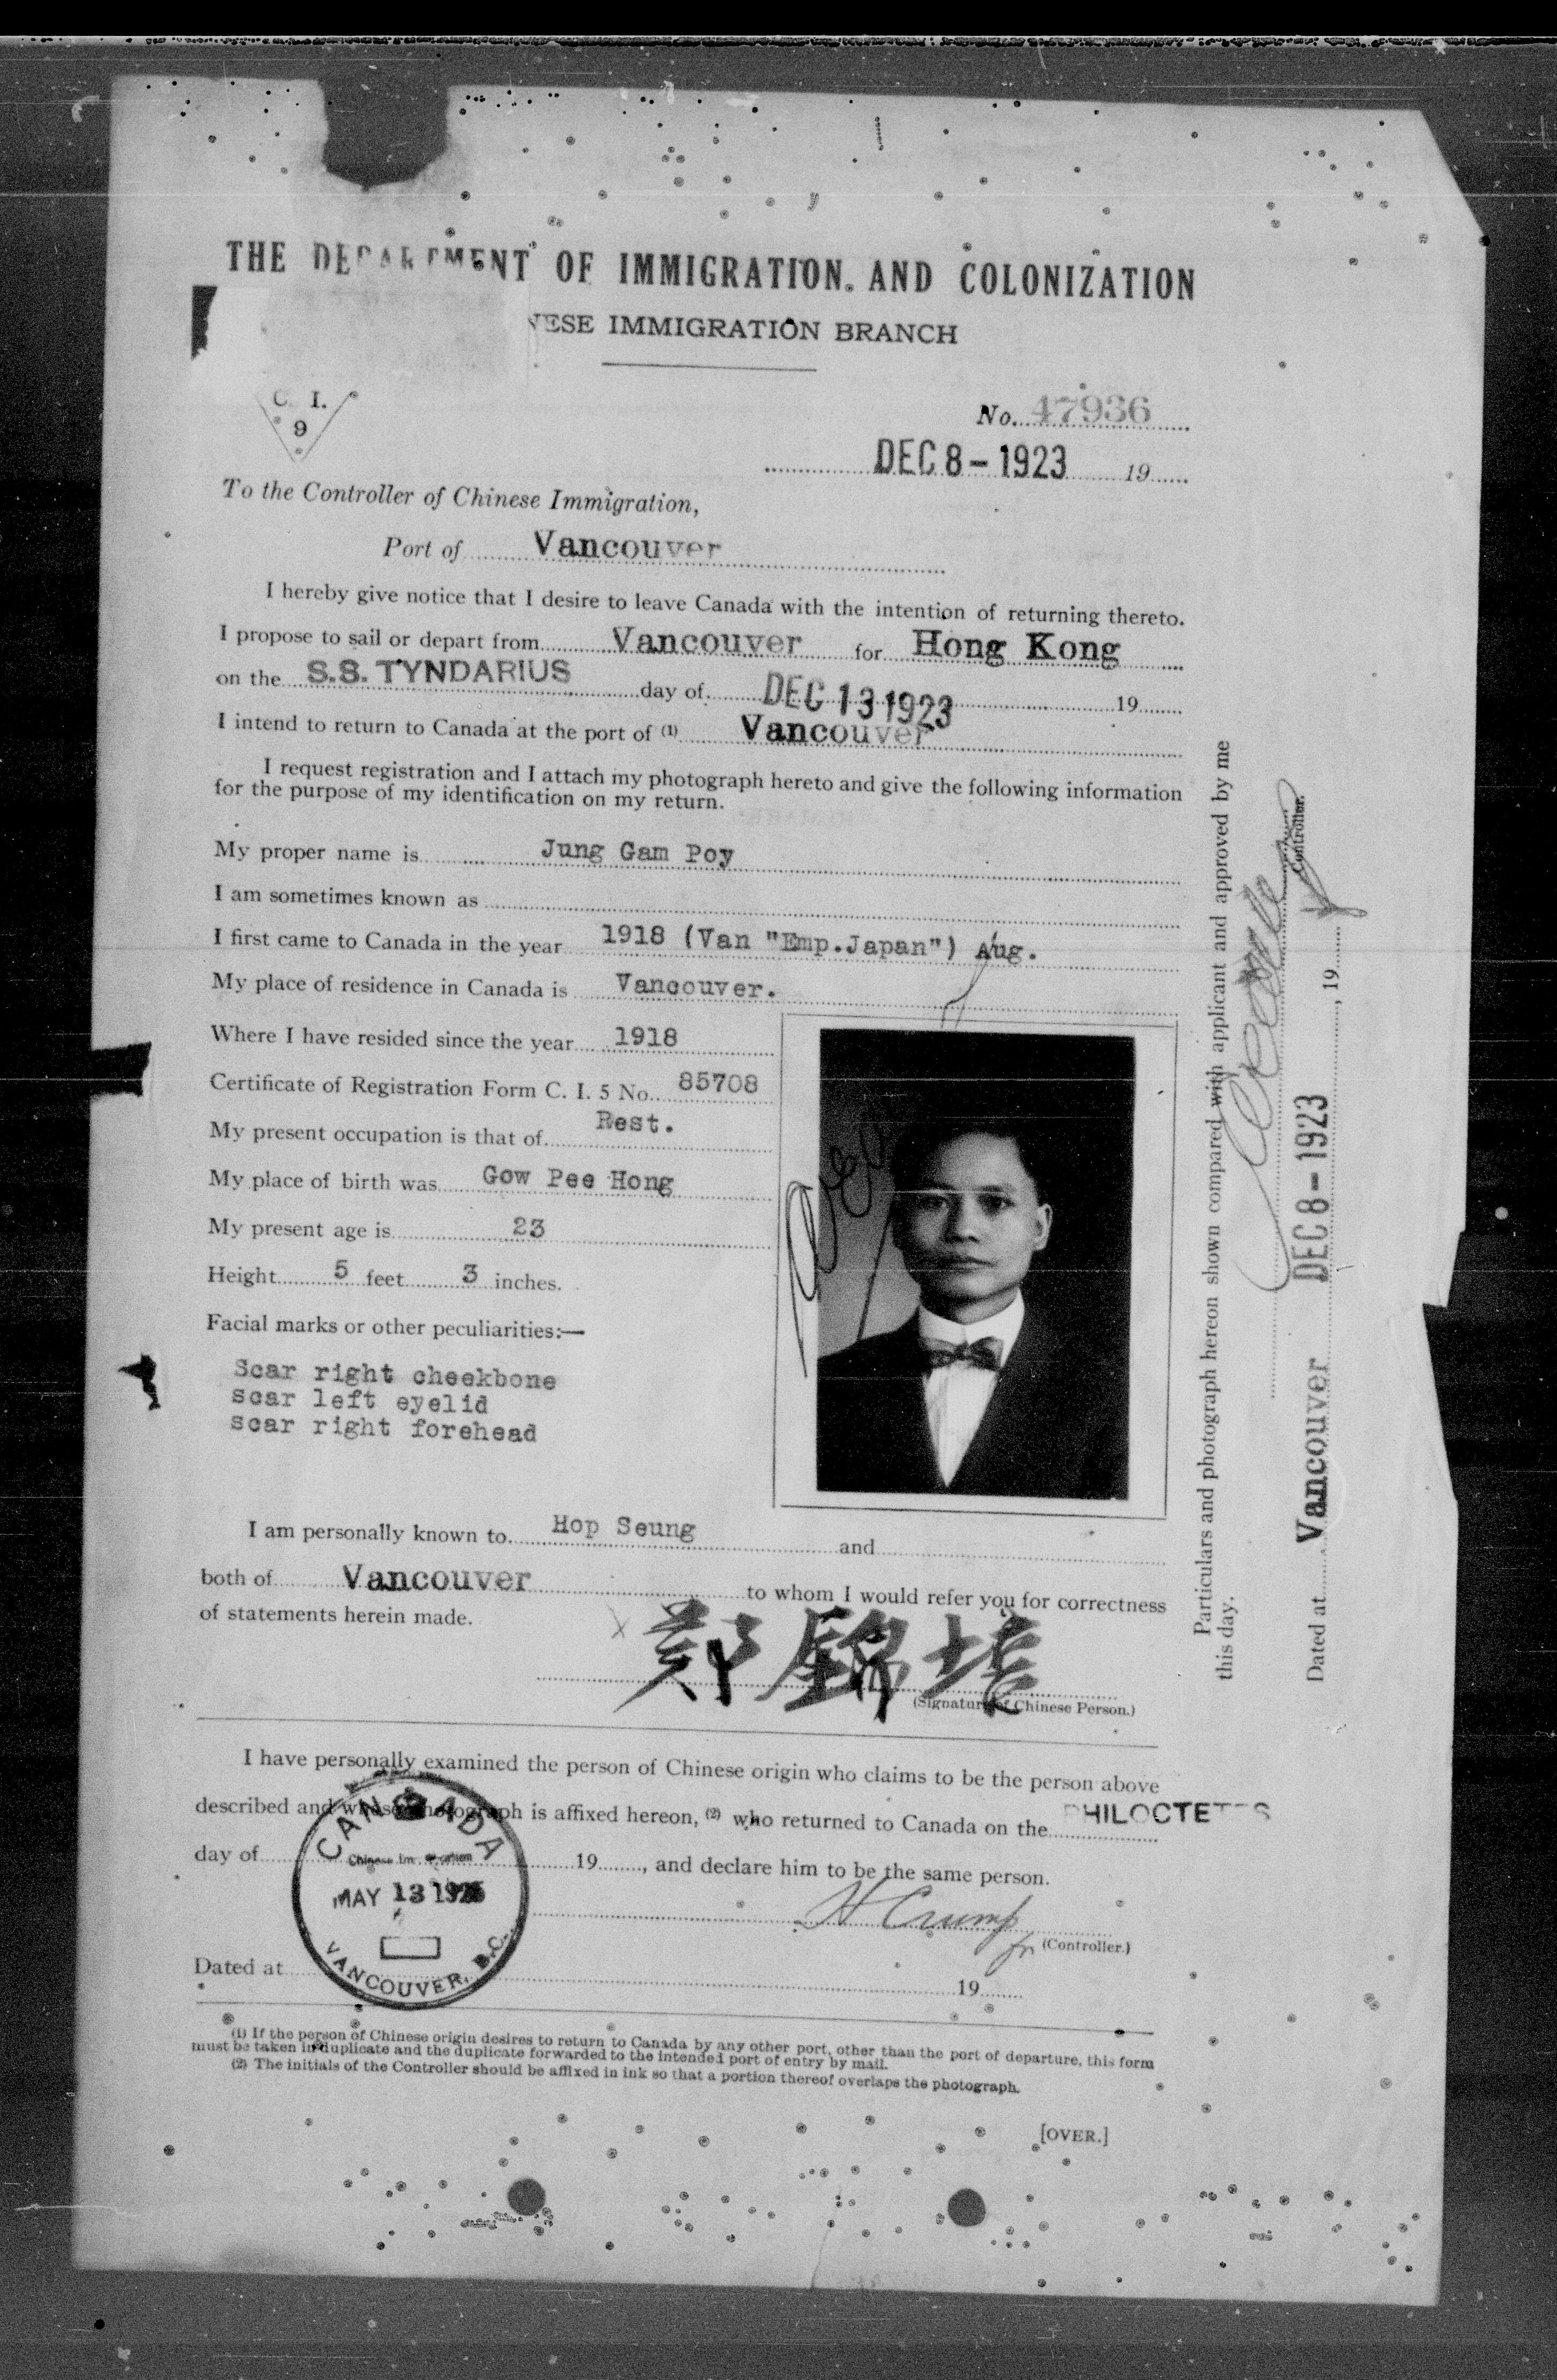 THE DEPARTMENT OF IMMIGRATION AND COLONIZATION
NESE IMMIGRATION BRANCH
C. I.
9
No. 47936
DEC 8 - 1923 19
To the Controller of Chinese Immigration,
Port of Vancouver
I hereby give notice that I desire to leave Canada with the intention of returning thereto.
I propose to sail or depart from Vancouver for Hong Kong
on the S.S. TYNDARIUS day of DEC 13 1923 19
I intend to return to Canada at the port of (1) Vancouver
I request registration and I attach my photograph hereto and give the following information
for the purpose of my identification on my return.
My proper name is Jung Gam Poy
I am sometimes known as
I first came to Canada in the year 1918 (Van "Emp.Japan") Aug.
My place of residence in Canada is Vancouver.
Where I have resided since the year 1918
Certificate of Registration Form C. I. 5 No. 85708
My present occupation is that of Rest.
My place of birth was Gow Pee Hong
My present age is 23
Height 5 feet 3 inches.
Facial marks or other peculiarities:—
Scar right cheekbone
scar left eyelid
scar right forehead
I am personally known to Hop Seung and
both of Vancouver to whom I would refer you for correctness
of statements herein made.
X 鄭錦培
(Signature of Chinese Person.)
I have personally examined the person of Chinese origin who claims to be the person above
described and whose photograph is affixed hereon, (2) who returned to Canada on the PHILOCTETES
day of 19, and declare him to be the same person.
H Crump
fr (Controller.)
Dated at 19
CANADA
Chinese Immigration
MAY 13
VANCOUVER, B.C.
(1) If the person of Chinese origin desires to return to Canada by any other port, other than the port of departure, this form
must be taken in duplicate and the duplicate forwarded to the intended port of entry by mail.
(2) The initials of the Controller should be affixed in ink so that a portion thereof overlaps the photograph.
[OVER.]
Particulars and photograph hereon shown compared with applicant and approved by me
this day.
Controller.
Dated at Vancouver DEC 8 - 1923, 19